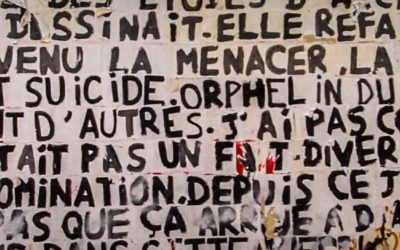 DES ÉTOILES D'A
DESSINAIT. ELLE REFA
VENU LA MENACER. LA
T SUICIDE. ORPHELIN DU
NT D'AUTRES. J'AI PAS CO
TAIT PAS UN FAIT-DIVER
OMINATION. DEPUIS CE J
PAS QUE ÇA ARRIVE À D'A
DANS CETTE